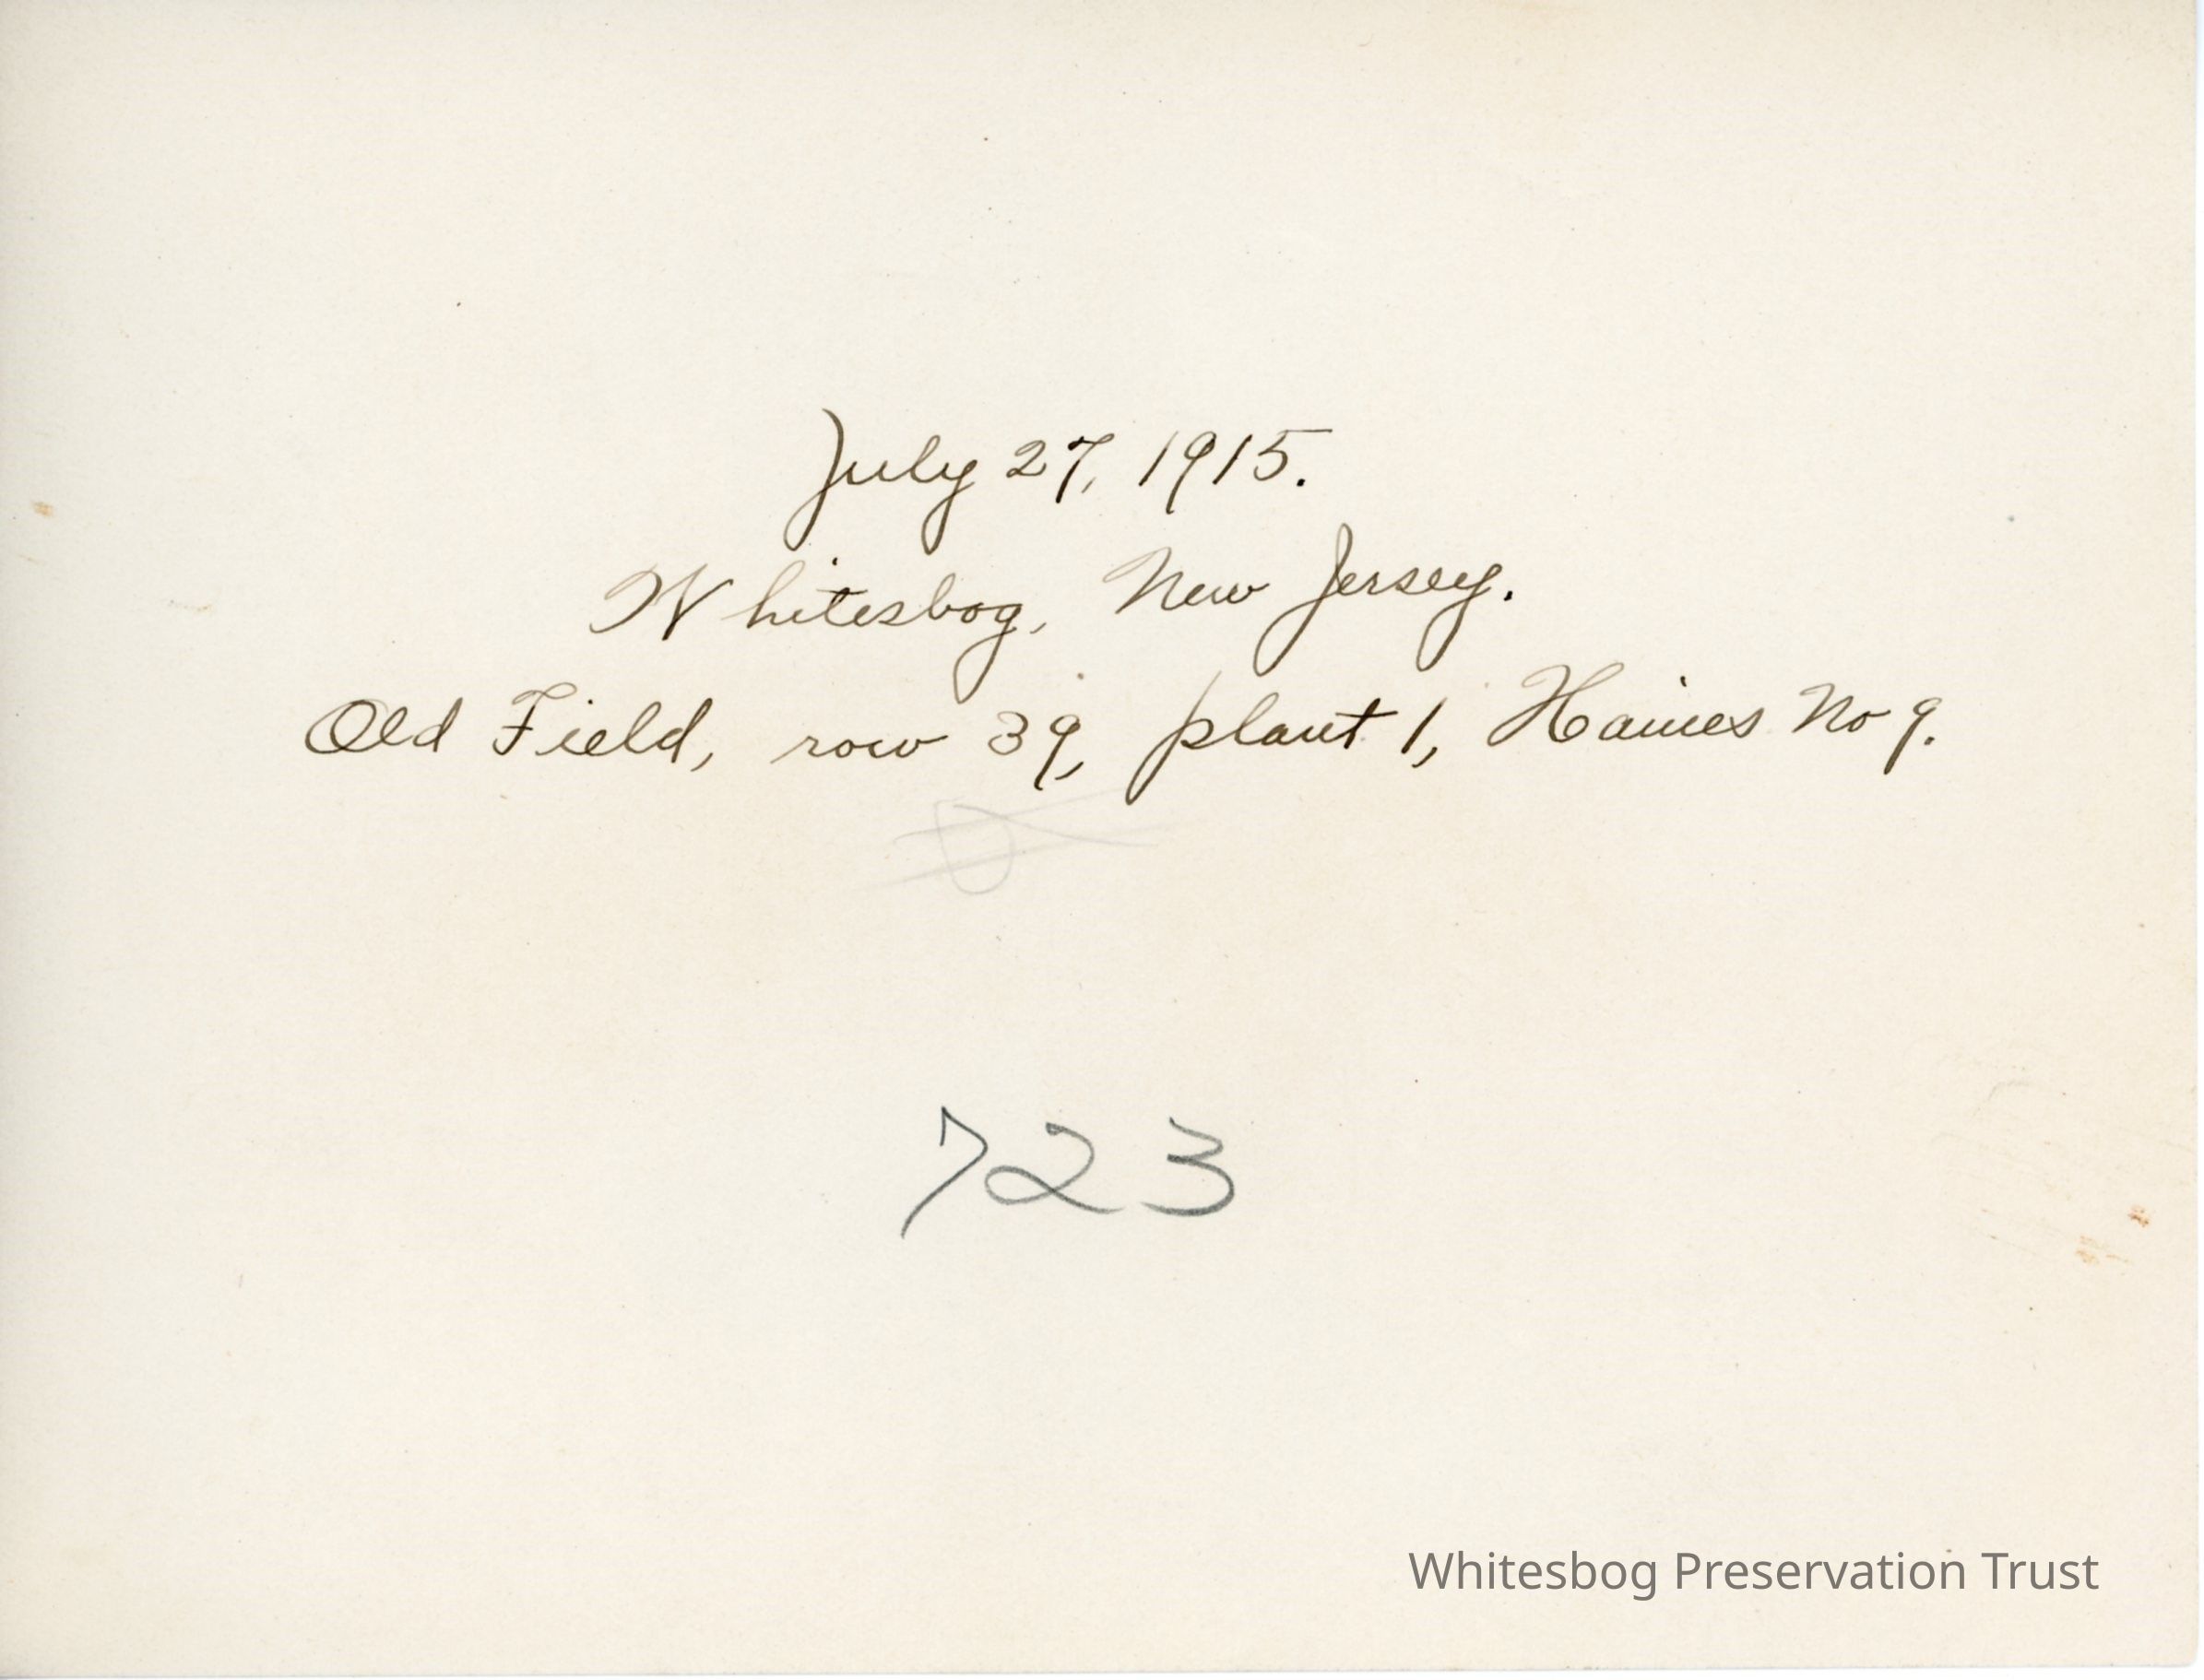 July 27, 1915.
Whitesbog, New Jersey.
Old Field, row 39, plant 1, Haines No 9.
723
Whitesbog Preservation Trust